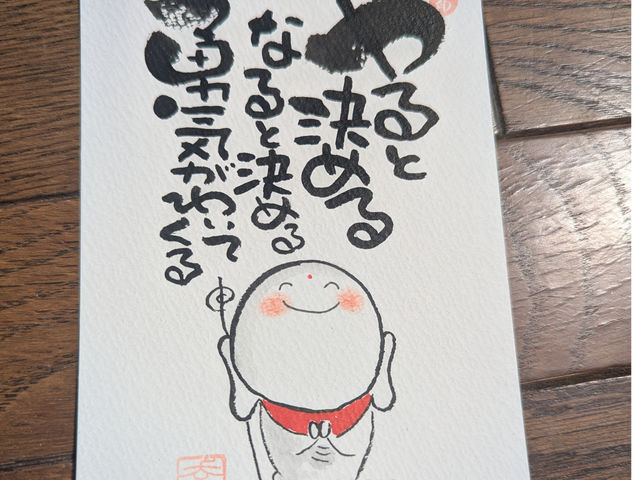 やると
決める
なると決める
勇気がわいて
くる